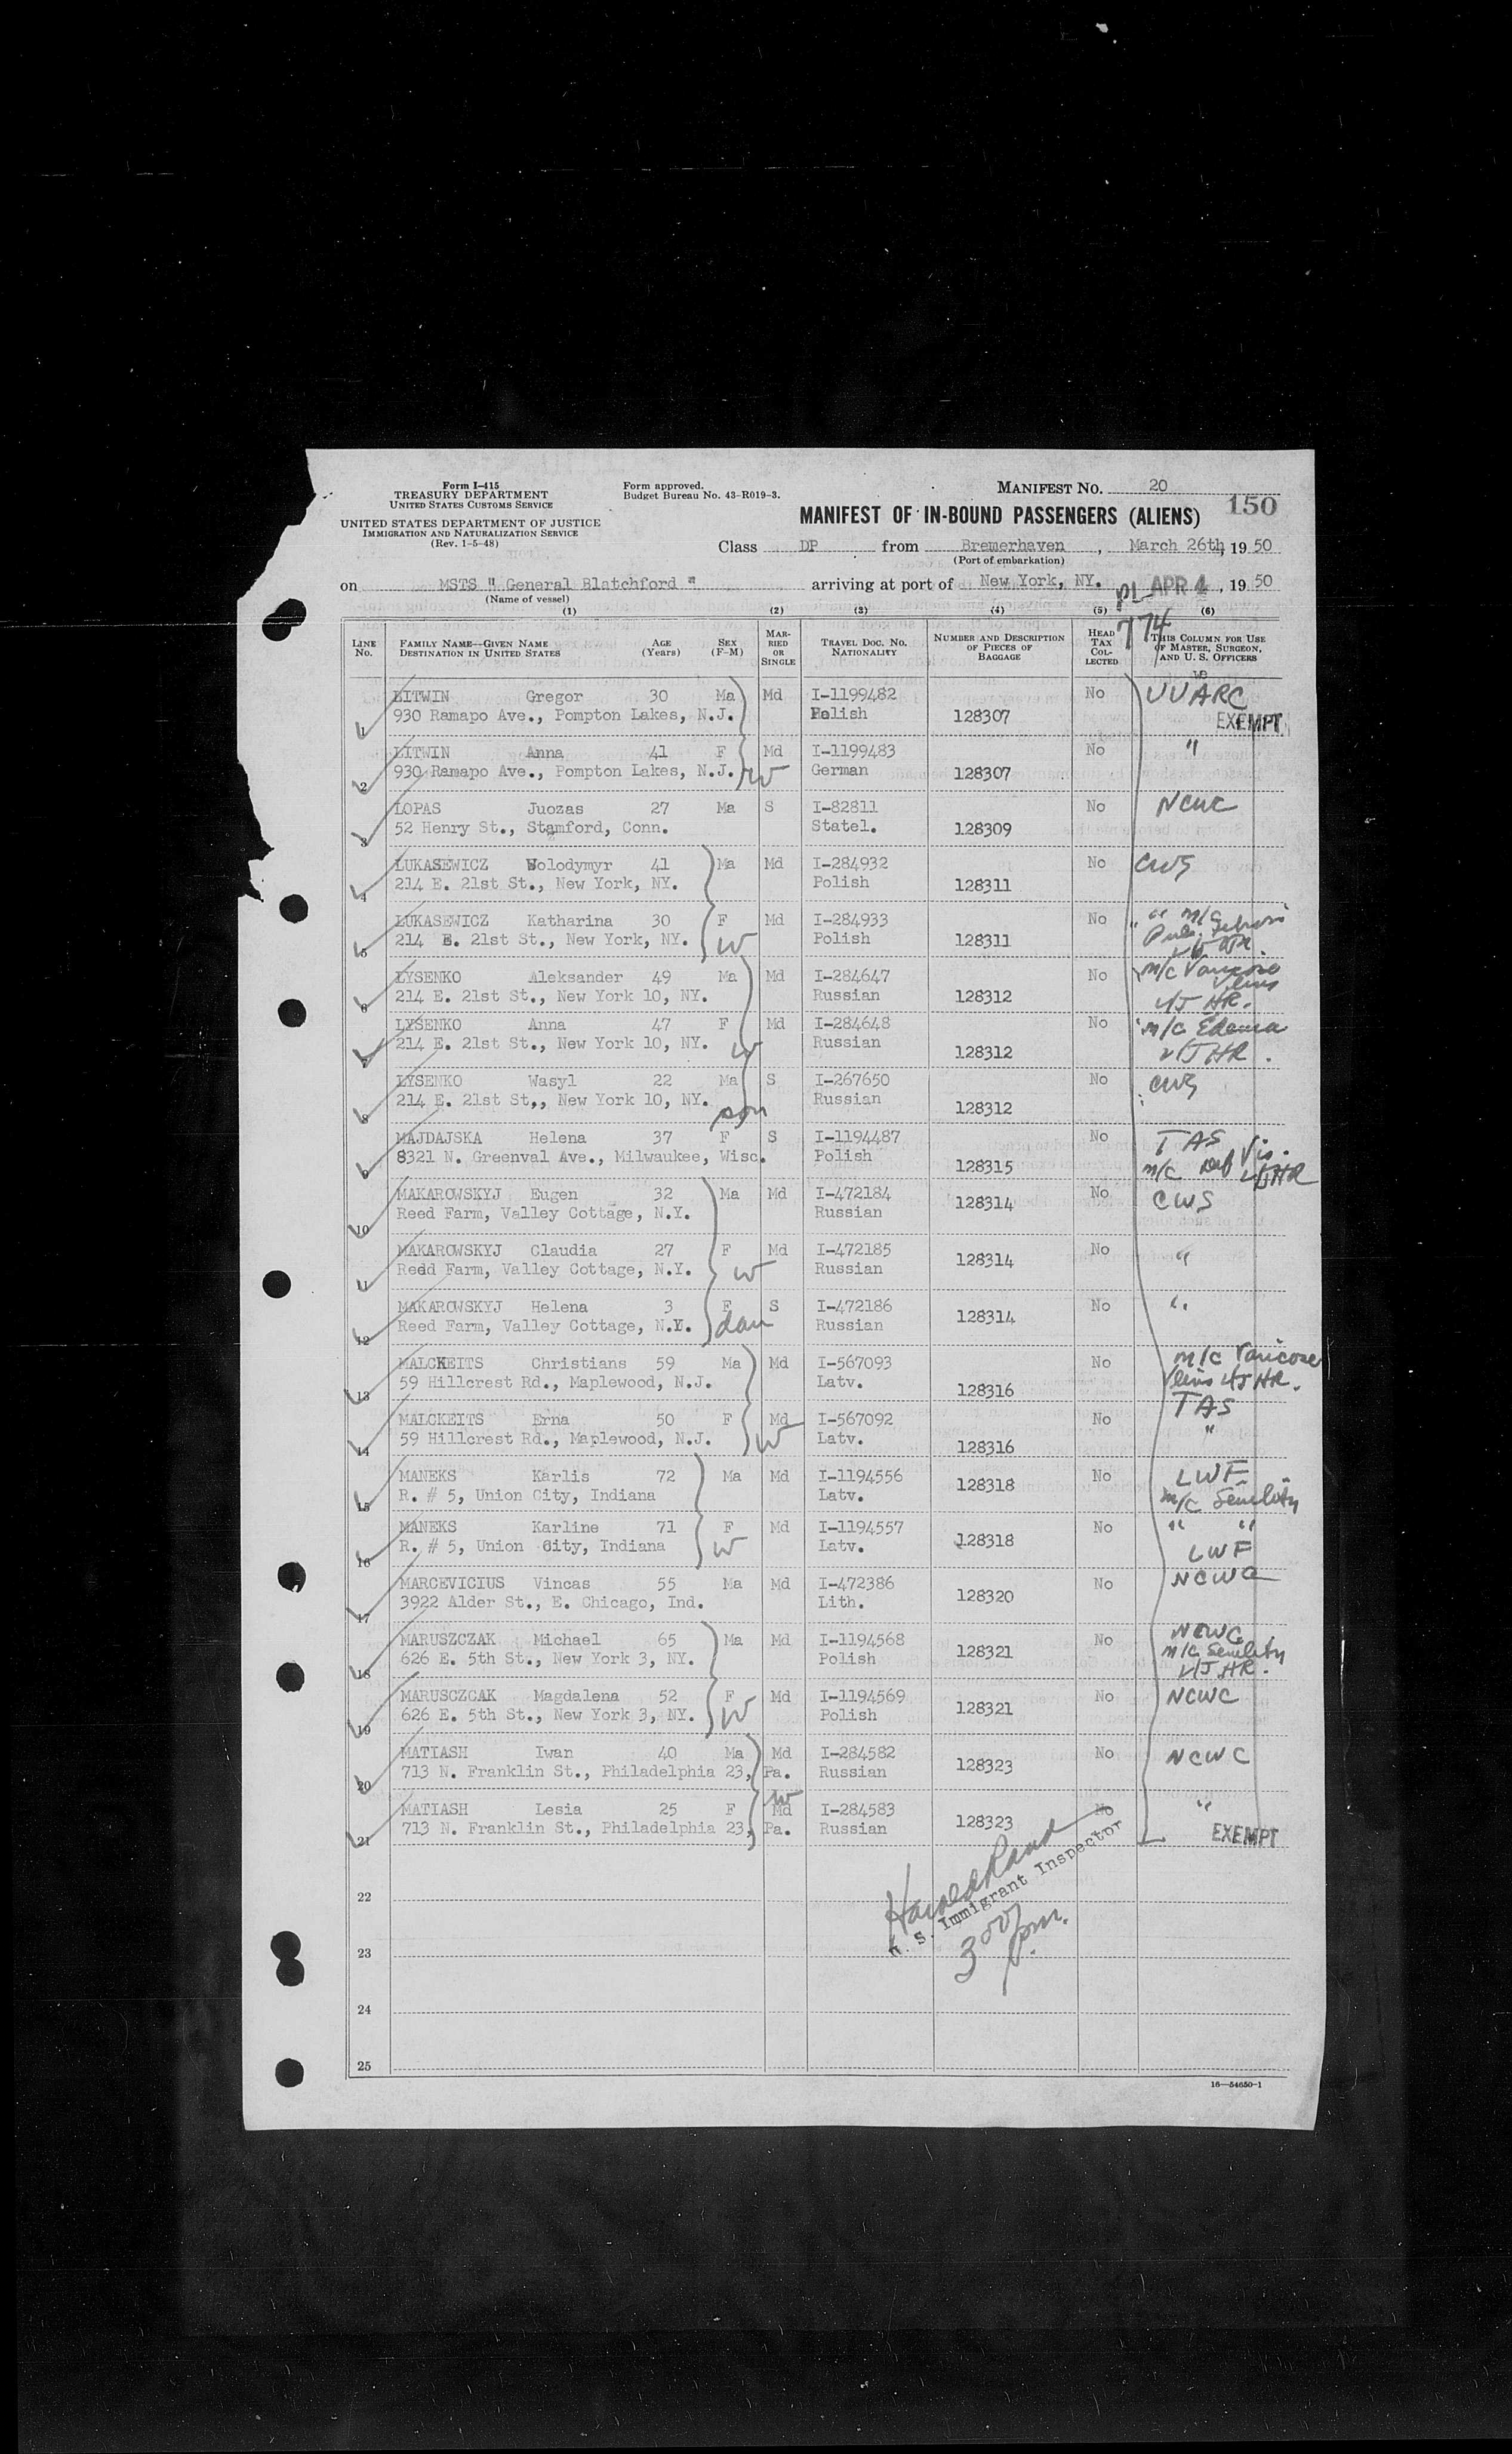 Form I-415
TREASURY DEPARTMENT
UNITED STATES CUSTOMS SERVICE
UNITED STATES DEPARTMENT OF JUSTICE
IMMIGRATION AND NATURALIZATION SERVICE
(Rev. 1-5-48)
Form approved.
Budget Bureau No. 43-R019-3.
MANIFEST NO. 20
150
MANIFEST OF IN-BOUND PASSENGERS (ALIENS)
Class DP from Bremerhaven, March 26th, 1950
(Port of embarkation)
on MSTS " General Blatchford " arriving at port of New York, NY. APR 4, 1950
(Name of vessel)
(1) (2) (3) (4) (5) (6)
774
LINE No. FAMILY NAME—GIVEN NAME DESTINATION IN UNITED STATES AGE (Years) SEX (F-M) MARRIED OR SINGLE TRAVEL DOC. NO. NATIONALITY NUMBER AND DESCRIPTION OF PIECES OF BAGGAGE HEAD TAX COLLECTED THIS COLUMN FOR USE OF MASTER, SURGEON, AND U. S. OFFICERS
1 LITWIN Gregor 30 Ma Md I-1199482 No UUARC
930 Ramapo Ave., Pompton Lakes, N.J. Polish 128307 EXEMPT
2 LITWIN Anna 41 F Md I-1199483 No "
930 Ramapo Ave., Pompton Lakes, N.J. W German 128307
3 LOPAS Juozas 27 Ma S I-82811 No NCWC
52 Henry St., Stamford, Conn. Statel. 128309
4 LUKASEWICZ Wolodymyr 41 Ma Md I-284932 No CWS
214 E. 21st St., New York, NY. Polish 128311
5 LUKASEWICZ Katharina 30 F Md I-284933 No " m/c
214 E. 21st St., New York, NY. W Polish 128311
6 LYSENKO Aleksander 49 Ma Md I-284647 No m/c Varicose Veins
214 E. 21st St., New York 10, NY. Russian 128312 HR.
7 LYSENKO Anna 47 F Md I-284648 No m/c Edema
214 E. 21st St., New York 10, NY. W Russian 128312 HR.
8 LYSENKO Wasyl 22 Ma S I-267650 No CWS
214 E. 21st St,, New York 10, NY. son Russian 128312
9 MAJDAJSKA Helena 37 F S I-1194487 No TAS
8321 N. Greenval Ave., Milwaukee, Wisc. Polish 128315 m/c Def Vis. HR
10 MAKAROWSKYJ Eugen 32 Ma Md I-472184 No CWS
Reed Farm, Valley Cottage, N.Y. Russian 128314
11 MAKAROWSKYJ Claudia 27 F Md I-472185 No "
Redd Farm, Valley Cottage, N.Y. W Russian 128314
12 MAKAROWSKYJ Helena 3 F S I-472186 No "
Reed Farm, Valley Cottage, N.Y. dau Russian 128314
13 MALCKEITS Christians 59 Ma Md I-567093 No m/c Varicose
59 Hillcrest Rd., Maplewood, N.J. Latv. 128316 Veins HR.
TAS
14 MALCKEITS Erna 50 F Md I-567092 No "
59 Hillcrest Rd., Maplewood, N.J. W Latv. 128316
15 MANEKS Karlis 72 Ma Md I-1194556 128318 No LWF
R. # 5, Union City, Indiana Latv. m/c Senility
16 MANEKS Karline 71 F Md I-1194557 128318 No " "
R. # 5, Union City, Indiana W Latv. LWF
17 MARCEVICIUS Vincas 55 Ma Md I-472386 128320 No NCWC
3922 Alder St., E. Chicago, Ind. Lith.
18 MARUSZCZAK Michael 65 Ma Md I-1194568 128321 No NCWC
626 E. 5th St., New York 3, NY. Polish m/c Senility HR.
19 MARUSCZCAK Magdalena 52 F Md I-1194569 128321 No NCWC
626 E. 5th St., New York 3, NY. W Polish
20 MATIASH Iwan 40 Ma Md I-284582 128323 No NCWC
713 N. Franklin St., Philadelphia 23, Pa. Russian
21 MATIASH Lesia 25 F W Md I-284583 128323 No "
713 N. Franklin St., Philadelphia 23, Pa. Russian EXEMPT
U. S. Immigrant Inspector
3 00 pm.
22
23
24
25
16—54650-1